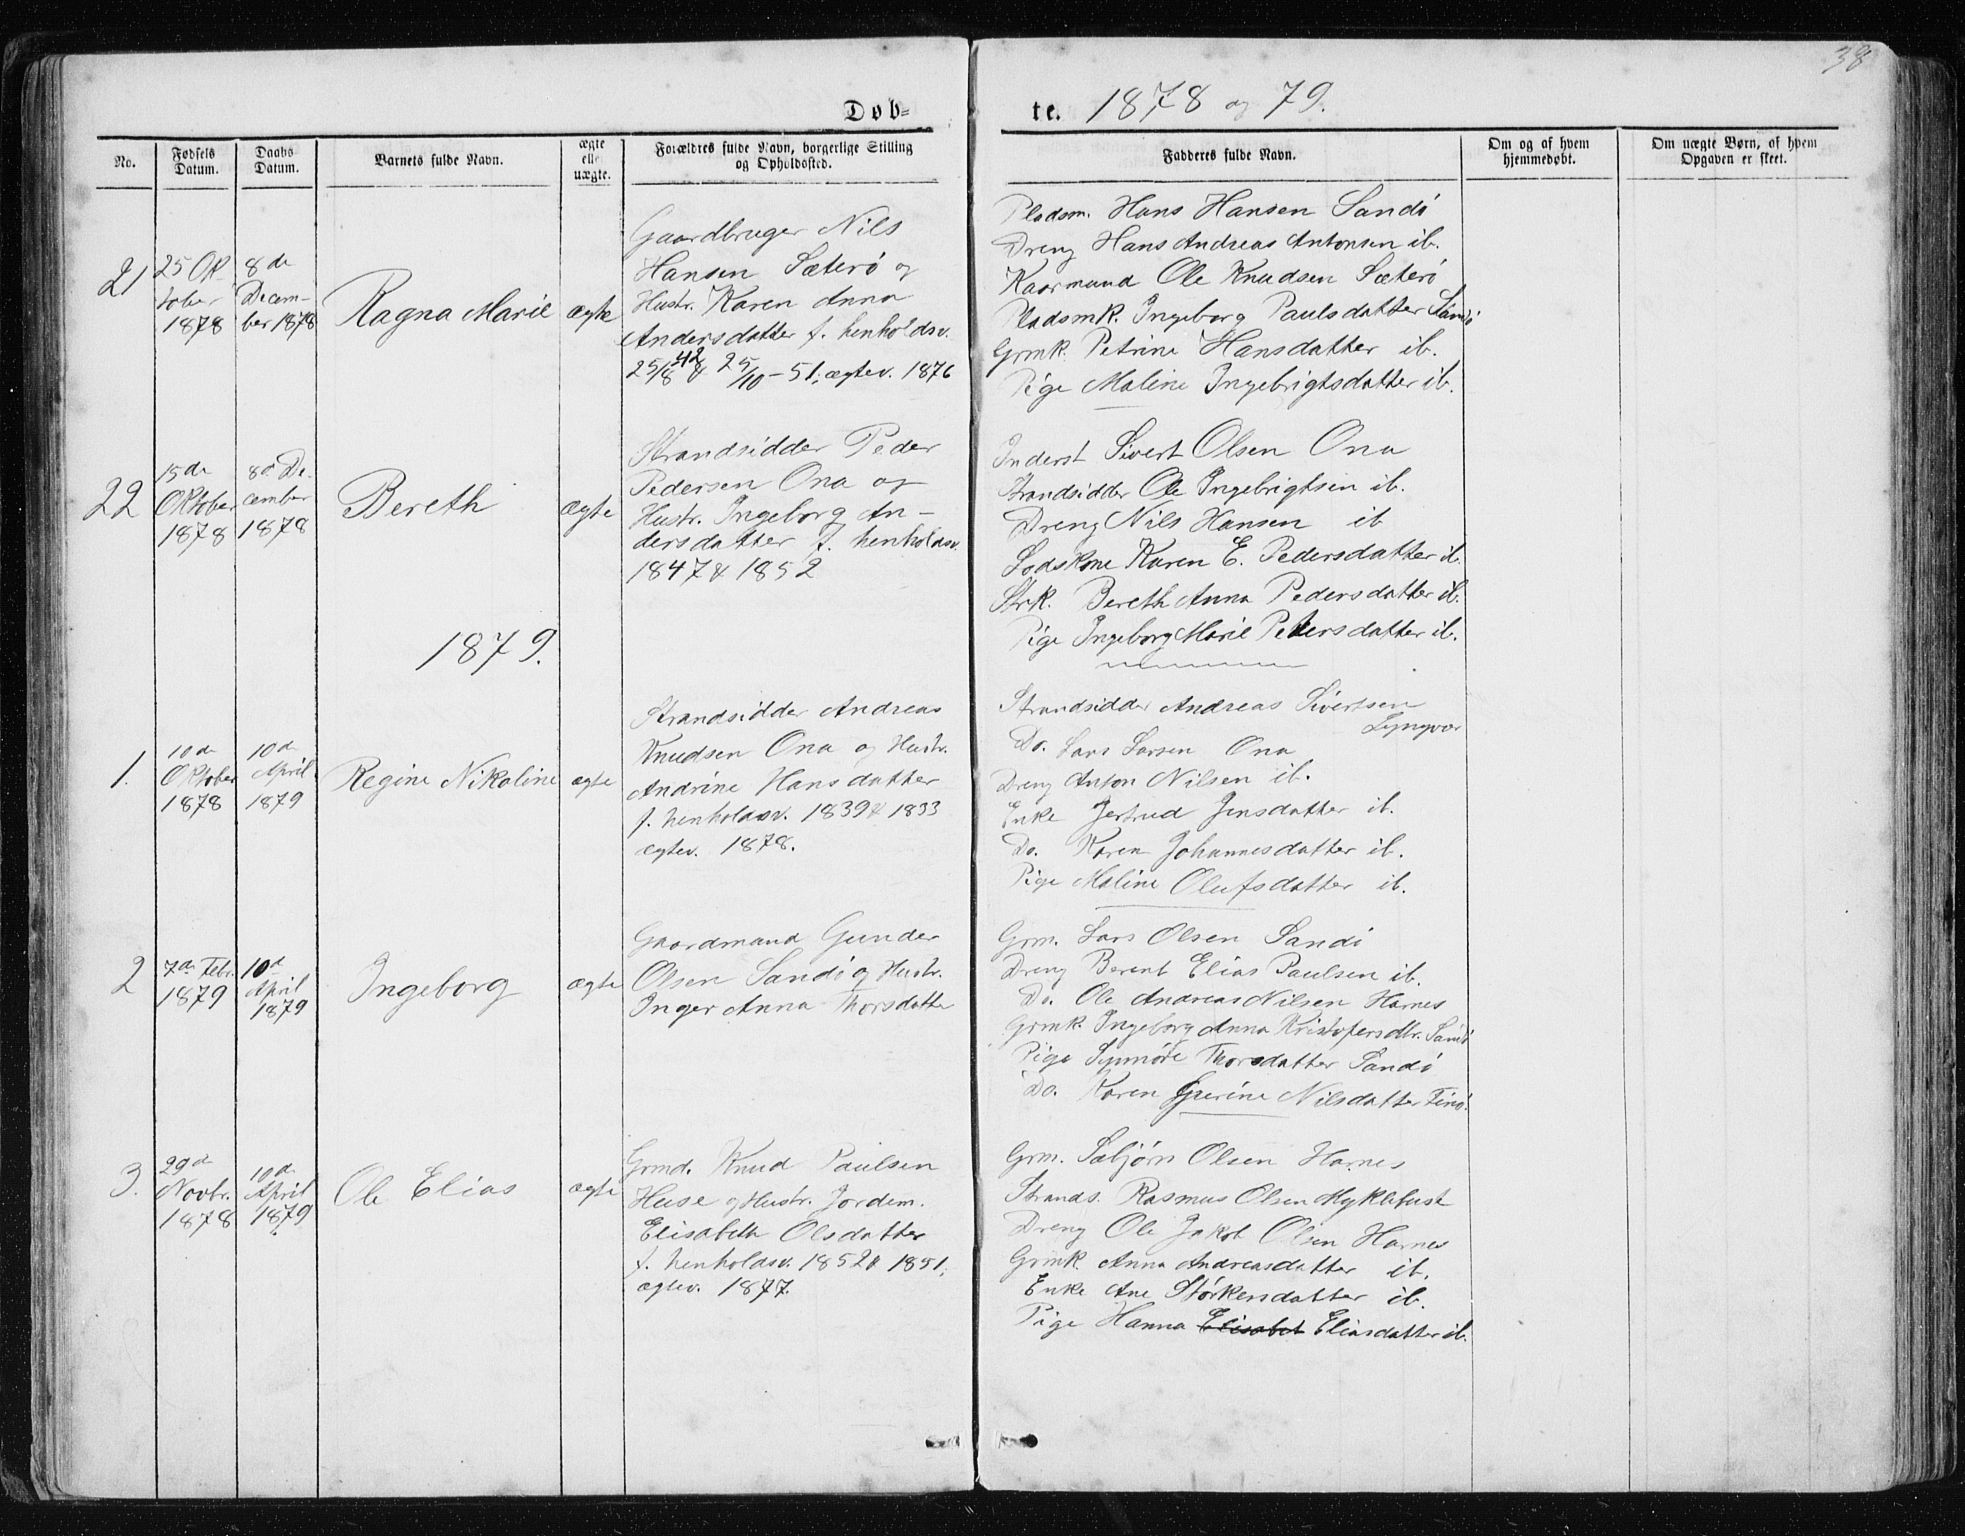 38
Døb-
te. 1878 og 79.
No.
Fødsels Datum.
Daabs Datum.
Barnets fulde Navn.
ægte eller uægte.
Forældres fulde Navn, borgerlige Stilling og Opholdssted.
Fadderes fulde Navn.
Om og af hvem hjemmedøbt.
Om uægte Børn, af hvem Opgaven er skeet.
21
25 Ok-
tober
1878
8de
Decem-
ber 1878
Ragna Marie
ægte
Gaardbruger Nils
Hansen Sæterö og
Hustr. Karen Anna
Andersdatter f. henholdsv.
25/8 42 & 25/10-51; ægtev. 1876
Pladsm. Hans Hansen Sandö
Dreng Hans Andreas Antonsen ib.
Kaarmand Ole Knudsen Sæterö
Pladsmk. Ingeborg Paulsdatter Sandö
Grmk. Petrine Hansdatter ib.
Pige Maline Ingebrigtsdatter ib.
22
15de
Oktober
1878
8d De-
cember
1878
Bereth
ægte
Strandsidder Peder
Pedersen Ona og
Hustr. Ingeborg An-
dersdatter f. henholdsv.
1847 & 1852
Inderst Sivert Olsen Ona
Strandsidder Ole Ingebrigtsen ib.
Dreng Nils Hansen ib
Lodskone Karen E. Pedersdatter ib.
Strk. Bereth Anna Pedersdatter ib.
Pige Ingeborg Marie Petersdatter ib.
1879.
1.
10de
Oktober
1878
10de
April
1879
Regine Nikoline
ægte
Strandsidder Andreas
Knudsen Ona og Hustr.
Andrine Hansdatter
f. henholdsv. 1839 & 1833
ægtev. 1878.
Strandsidder Andreas Sivertsen
Lyngvær
Do. Lars Larsen Ona
Dreng Anton Nilsen ib.
Enke Jertrud Jensdatter ib.
Do. Karen Johannesdatter ib.
Pige Maline Olufsdatter ib.
2
7de Febr.
1879
10d
April
1879
Ingeborg
ægte
Gaardmand Gunder
Olsen Sandö og Hustr.
Inger Anna Thorsdatter
Grm. Lars Olsen Sandö
Dreng Berent Elias Paulsen ib.
Do. Ole Andreas Nilsen Harnes
Grmk. Ingeborg Anna Kristofersdtr. Sandö
Pige Synnöve Thorsdatter Sandö
Do. Karen Gurine Nilsdatter Finö.
3.
29d
Novbr.
1878
10de
April
1879
Ole Elias
ægte
Grmd. Knud Paulsen
Huse og Hustr. Jordem.
Elisabeth Olsdatter
f. henholdsv. 1852 & 1851;
ægtev. 1877.
Grm. Sæbjörn Olsen Harnes
Strands. Rasmus Olsen Myklebust
Dreng Ole Jakob Olsen Harnes
Grmk. Anna Andreasdatter ib.
Enke Ane Störkersdatter ib.
Pige Hanna Elisabet Eliasdatter ib.